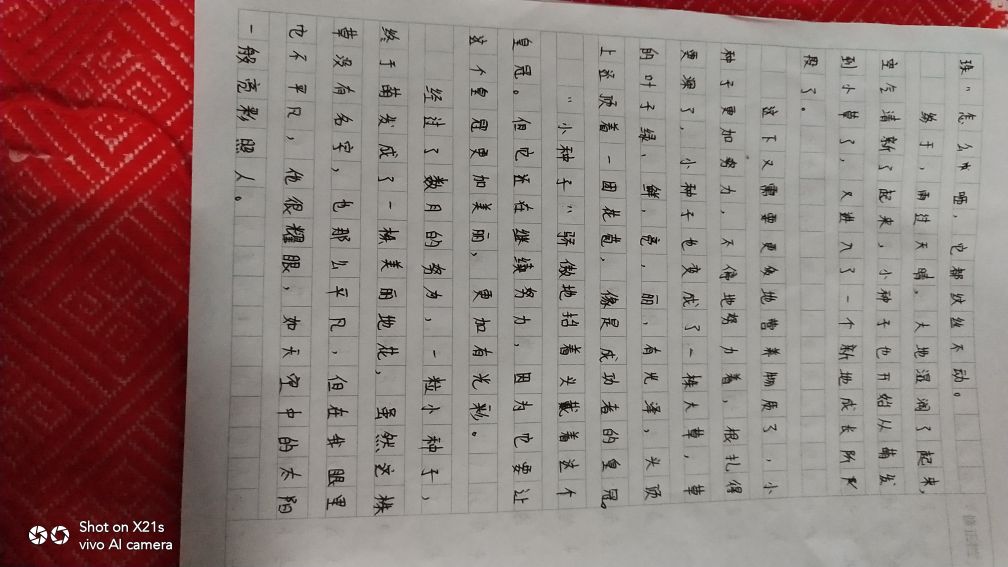 珠"怎么喝，它都纹丝不动。
终于，雨过天晴。大地湿润了起来，
空气清新了起来，小种子也开始从萌发
到小草了，又进入了一个新地成长阶
段了。
这下又需要更多地营养物质了，小
种子更加努力，不停地努力着，根扎得
更深了，小种子也变成了一株大草，草
的叶子绿，鲜，亮，丽，有光泽，头顶
上还顶着一团花苞，像是成功者的皇冠。
"小种子"骄傲地抬着头戴着这个
皇冠。但它还在继续努力，因为它要让
这个皇冠更加美丽，更加有光彩。
经过了数月的努力，一粒小种子，
终于萌发成了一株美丽地花，虽然这株
草没有名字，也那么平凡，但在我眼里
它不平凡，他很耀眼，如天空中的太阳
一般亮彩照人。
Shot on X21s
vivo AI camera